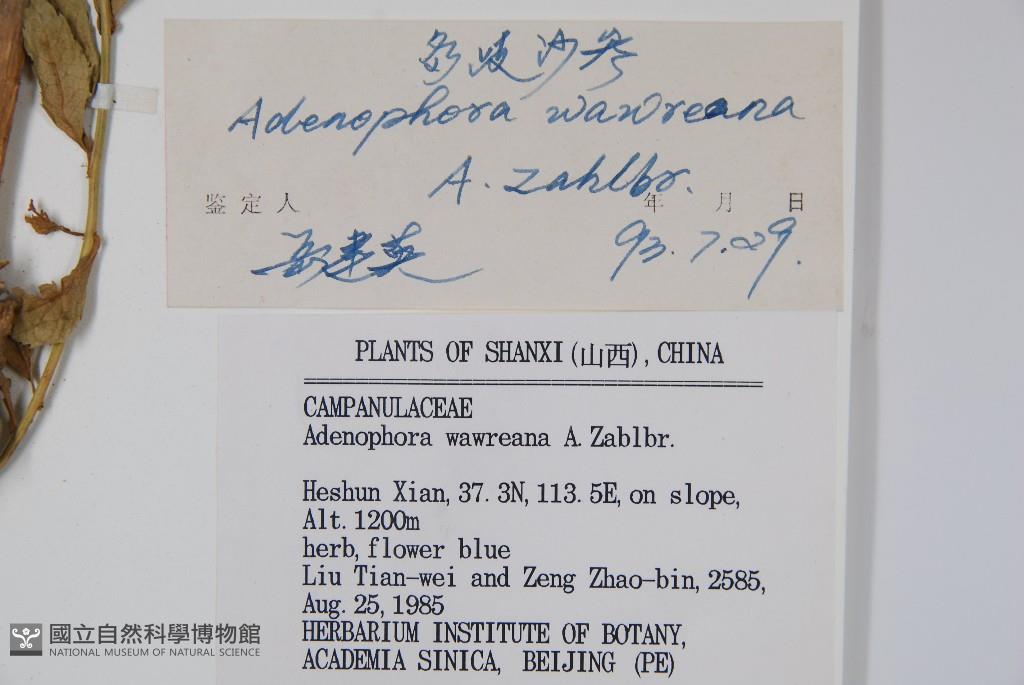 多歧沙参
Adenophora wawreana
A. Zahlbr.
鉴定人 年 月 日
岳建英 93.7.29.
PLANTS OF SHANXI(山西), CHINA
CAMPANULACEAE
Adenophora wawreana A. Zablbr.
Heshun Xian, 37. 3N, 113. 5E, on slope,
Alt. 1200m
herb, flower blue
Liu Tian-wei and Zeng Zhao-bin, 2585,
Aug. 25, 1985
HERBARIUM INSTITUTE OF BOTANY,
ACADEMIA SINICA, BEIJING (PE)
國立自然科學博物館
NATIONAL MUSEUM OF NATURAL SCIENCE